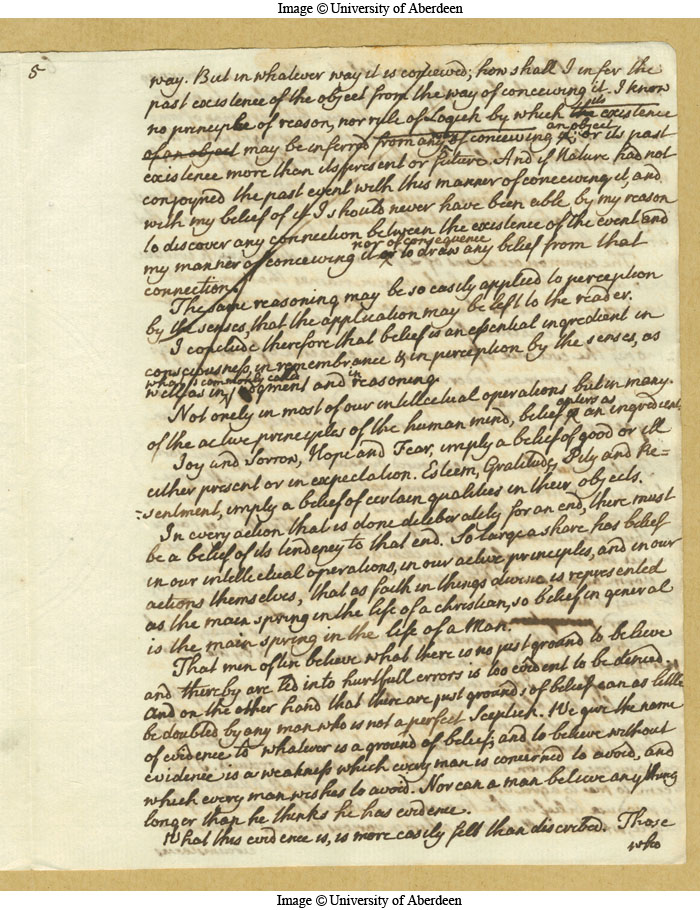 Image © University of Aberdeen
5
way. But in whatever way it is conceived; how shall I infer the
past existence of the object from the way of conceiving it. I know
no principle of reason, nor rule of Logick by which the existence
its
of an object may be inferred from any of conceiving it; or its past
an object
existence more than its present or future. And if Nature had not
conjoyned the past event with this manner of conceiving it, and
with my belief of it I should never have been able by my reason
to discover any connection between the existence of the event and
my manner of conceiving it or to draw any belief from that
nor of consequence
connection.
The same reasoning may be so easily applied to perception
by the senses, that the application may be left to the reader.
I conclude therefore that belief is an essential ingredient in
consciousness, in remembrance & in perception by the senses, as
what is commonly called
well as in Judgment and in reasoning.
Not onely in most of our intellectual operations but in many
of the active principles of the human mind, belief enters as an ingredient.
Joy and Sorrow, Hope and Fear, imply a belief of good or ill
either present or in expectation. Esteem, Gratitude, Pity and Re=
=sentment, imply a belief of certain qualities in their objects.
In every action that is done deliberately for an end, there must
be a belief of its tendency to that end. So large a share has belief
in our intellectual operations, in our active principles, and in our
actions themselves, that as faith in things divine is represented
as the main spring in the life of a christian, so belief in general
is the main spring in the life of a Man.
That men often believe what there is no just ground to believe
and thereby are led into hurtfull errors is too evident to be denied.
And on the other hand that there are just grounds of belief can as little
be doubted by any man who is not a perfect Sceptick. We give the name
of evidence to whatever is a ground of belief; and to believe without
evidence is a weakness which every man is concerned to avoid, and
which every man wishes to avoid. Nor can a man believe any thing
longer than he thinks he has evidence.
What this evidence is, is more easily felt than discribed. Those
who
Image © University of Aberdeen